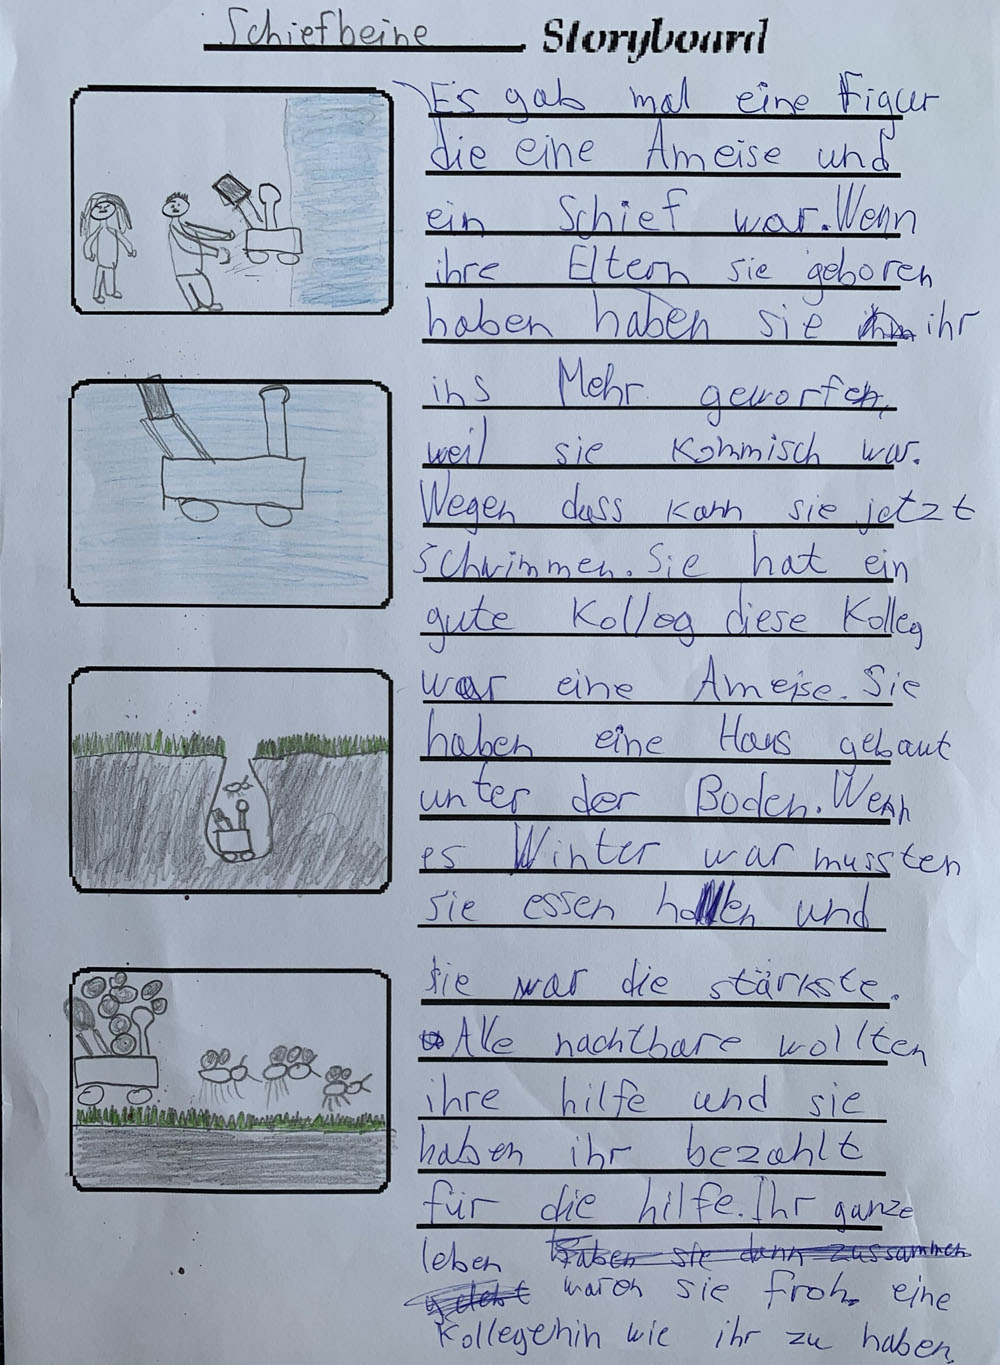 Schiefbeine Storyboard
Es gab mal eine Figur
die eine Ameise und
ein Schief war. Wenn
ihre Eltern sie geboren
haben haben sie ihr
ins Mehr geworfen,
weil sie kommisch war.
Wegen dass kann sie jetzt
schwimmen. Sie hat ein
gute Kolleg diese Kolleg
war eine Ameise. Sie
haben eine Haus gebaut
unter der Boden. Wenn
es Winter war mussten
sie essen hollen und
sie war die stärkste.
Alle nachtbare wollten
ihre hilfe und sie
haben ihr bezahlt
für die hilfe. Ihr ganze
leben haben sie dann zusammen
gelebt waren sie froh eine
Kollegehin wie ihr zu haben.